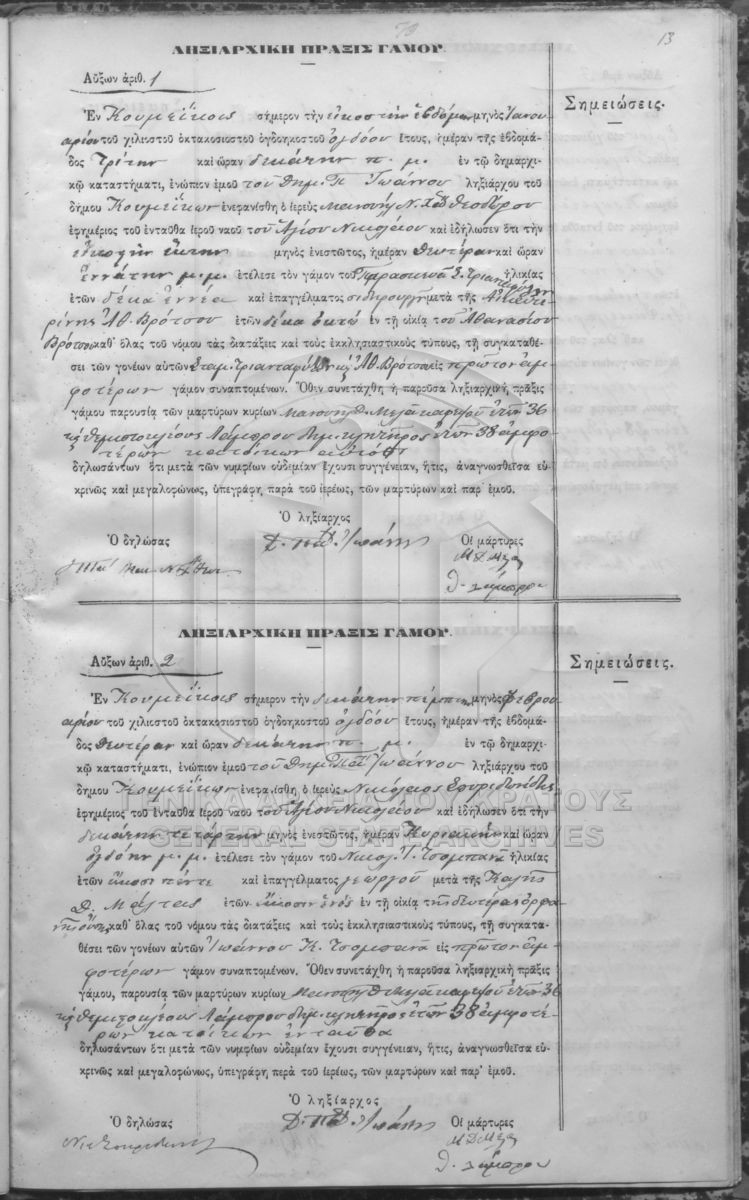 13
ΛΗΞΙΑΡΧΙΚΗ ΠΡΑΞΙΣ ΓΑΜΟΥ.
Αὔξων ἀριθ. 1
Σημειώσεις.
Ἐν Κουμεΐκοις σήμερον τὴν εἰκοστὴν ἑβδόμην μηνὸς Ἰανου
αρίου τοῦ χιλιοστοῦ ὀκτακοσιοστοῦ ὀγδοηκοστοῦ ὀγδόου ἔτους, ἡμέραν τῆς ἑβδομά-
δος Τρίτην καὶ ὥραν δεκάτην π. μ. ἐν τῷ δημαρχι-
κῷ καταστήματι, ἐνώπιον ἐμοῦ τοῦ Δημ. Π Ἰωάννου ληξιάρχου τοῦ
δήμου Κουμεΐκων ἐνεφανίσθη ὁ ἱερεὺς Μανουὴλ Ν. Θεοδώρου
ἐφημέριος τοῦ ἐνταῦθα ἱεροῦ ναοῦ τοῦ Ἁγίου Νικολάου καὶ ἐδήλωσεν ὅτι τὴν
εἰκοστὴν ἕκτην μηνὸς ἐνεστῶτος, ἡμέραν Δευτέραν καὶ ὥραν
ἐννάτην μ. μ. ἐτέλεσε τὸν γάμον τοῦ Παρασκευᾶ Σ. Τριανταφύλλου ἡλικίας
ἐτῶν δέκα ἐννέα καὶ ἐπαγγέλματος σιδηρουργοῦ μετὰ τῆς Αἰκατε
ρίνης Ἀθ. Βρότσου ἐτῶν δέκα ὀκτώ ἐν τῇ οἰκίᾳ τοῦ Ἀθανασίου
Βρότσου καθ᾿ ὅλας τοῦ νόμου τὰς διατάξεις καὶ τοὺς ἐκκλησιαστικοὺς τύπους, τῇ συγκαταθέ-
σει τῶν γονέων αὐτῶν Σταμ. Τριανταφύλλου κ Ἀθ. Βρότσου εἰς πρῶτον ἀμ
φοτέρων γάμον συναπτομένων. Ὅθεν συνετάχθη ἡ παροῦσα ληξιαρχικὴ πρᾶξις
γάμου παρουσίᾳ τῶν μαρτύρων κυρίων Μανουὴλ Δ. ἐτῶν 36
κ Θεμιστοκλέους Λάμπρου Δημ. κλητῆρος ἐτῶν 38 ἀμφο
τέρων κατοίκων αὐτόθι
δηλωσάντων ὅτι μετὰ τῶν νυμφίων οὐδεμίαν ἔχουσι συγγένειαν, ἥτις, ἀναγνωσθεῖσα εὐ-
κρινῶς καὶ μεγαλοφώνως, ὑπεγράφη παρὰ τοῦ ἱερέως, τῶν μαρτύρων καὶ παρ᾿ ἐμοῦ.
Ὁ ληξίαρχος
Ὁ δηλώσας
Δ. Παπ. Ἰωάννης
Οἱ μάρτυρες
Θ. Λάμπρου
ΛΗΞΙΑΡΧΙΚΗ ΠΡΑΞΙΣ ΓΑΜΟΥ.
Αὔξων ἀριθ. 2
Σημειώσεις.
Ἐν Κουμεΐκοις σήμερον τὴν δεκάτην πέμπτην μηνὸς Φεβρου
αρίου τοῦ χιλιοστοῦ ὀκτακοσιοστοῦ ὀγδοηκοστοῦ ὀγδόου ἔτους, ἡμέραν τῆς ἑβδομά-
δος Δευτέραν καὶ ὥραν δεκάτην π. μ. ἐν τῷ δημαρχι-
κῷ καταστήματι, ἐνώπιον ἐμοῦ τοῦ Δημ. Παπ Ἰωάννου ληξιάρχου τοῦ
δήμου Κουμεΐκων ἐνεφανίσθη ὁ ἱερεὺς Νικόλαος Σπυριδωνίδης
ἐφημέριος τοῦ ἐνταῦθα ἱεροῦ ναοῦ τοῦ Ἁγίου Νικολάου καὶ ἐδήλωσεν ὅτι τὴν
δεκάτην τετάρτην μηνὸς ἐνεστῶτος, ἡμέραν Κυριακὴν καὶ ὥραν
ὀγδόην μ. μ. ἐτέλεσε τὸν γάμον τοῦ Νικολ. Ἰ. Τσομπανᾶ ἡλικίας
ἐτῶν εἴκοσι πέντε καὶ ἐπαγγέλματος γεωργοῦ μετὰ τῆς Καλῆς
Δ. Μαλτᾶς ἐτῶν εἴκοσιν ἑνὸς ἐν τῇ οἰκίᾳ τῆς δευτέρας ὀρφα
νῆς οὔσης καθ᾿ ὅλας τοῦ νόμου τὰς διατάξεις καὶ τοὺς ἐκκλησιαστικοὺς τύπους, τῇ συγκατα-
θέσει τῶν γονέων αὐτῶν Ἰωάννου Κ. Τσομπανᾶ εἰς πρῶτον ἀμ
φοτέρων γάμον συναπτομένων. Ὅθεν συνετάχθη ἡ παροῦσα ληξιαρχικὴ πρᾶξις
γάμου, παρουσίᾳ τῶν μαρτύρων κυρίων Μανουὴλ Δ ἐτῶν 36
κ Θεμιστοκλέους Λάμπρου Δημ. κλητῆρος ἐτῶν 38 ἀμφοτέ
ρων κατοίκων ἐνταῦθα
δηλωσάντων ὅτι μετὰ τῶν νυμφίων οὐδεμίαν ἔχουσι συγγένειαν, ἥτις, ἀναγνωσθεῖσα εὐ-
κρινῶς καὶ μεγαλοφώνως, ὑπεγράφη περὰ τοῦ ἱερέως, τῶν μαρτύρων καὶ παρ᾿ ἐμοῦ.
Ὁ ληξίαρχος
Ὁ δηλώσας
Δ. Παπ. Ἰωάννης
Οἱ μάρτυρες
Θ. Λάμπρου
ΓΕΝΙΚΑ ΑΡΧΕΙΑ ΤΟΥ ΚΡΑΤΟΥΣ
GENERAL STATE ARCHIVES